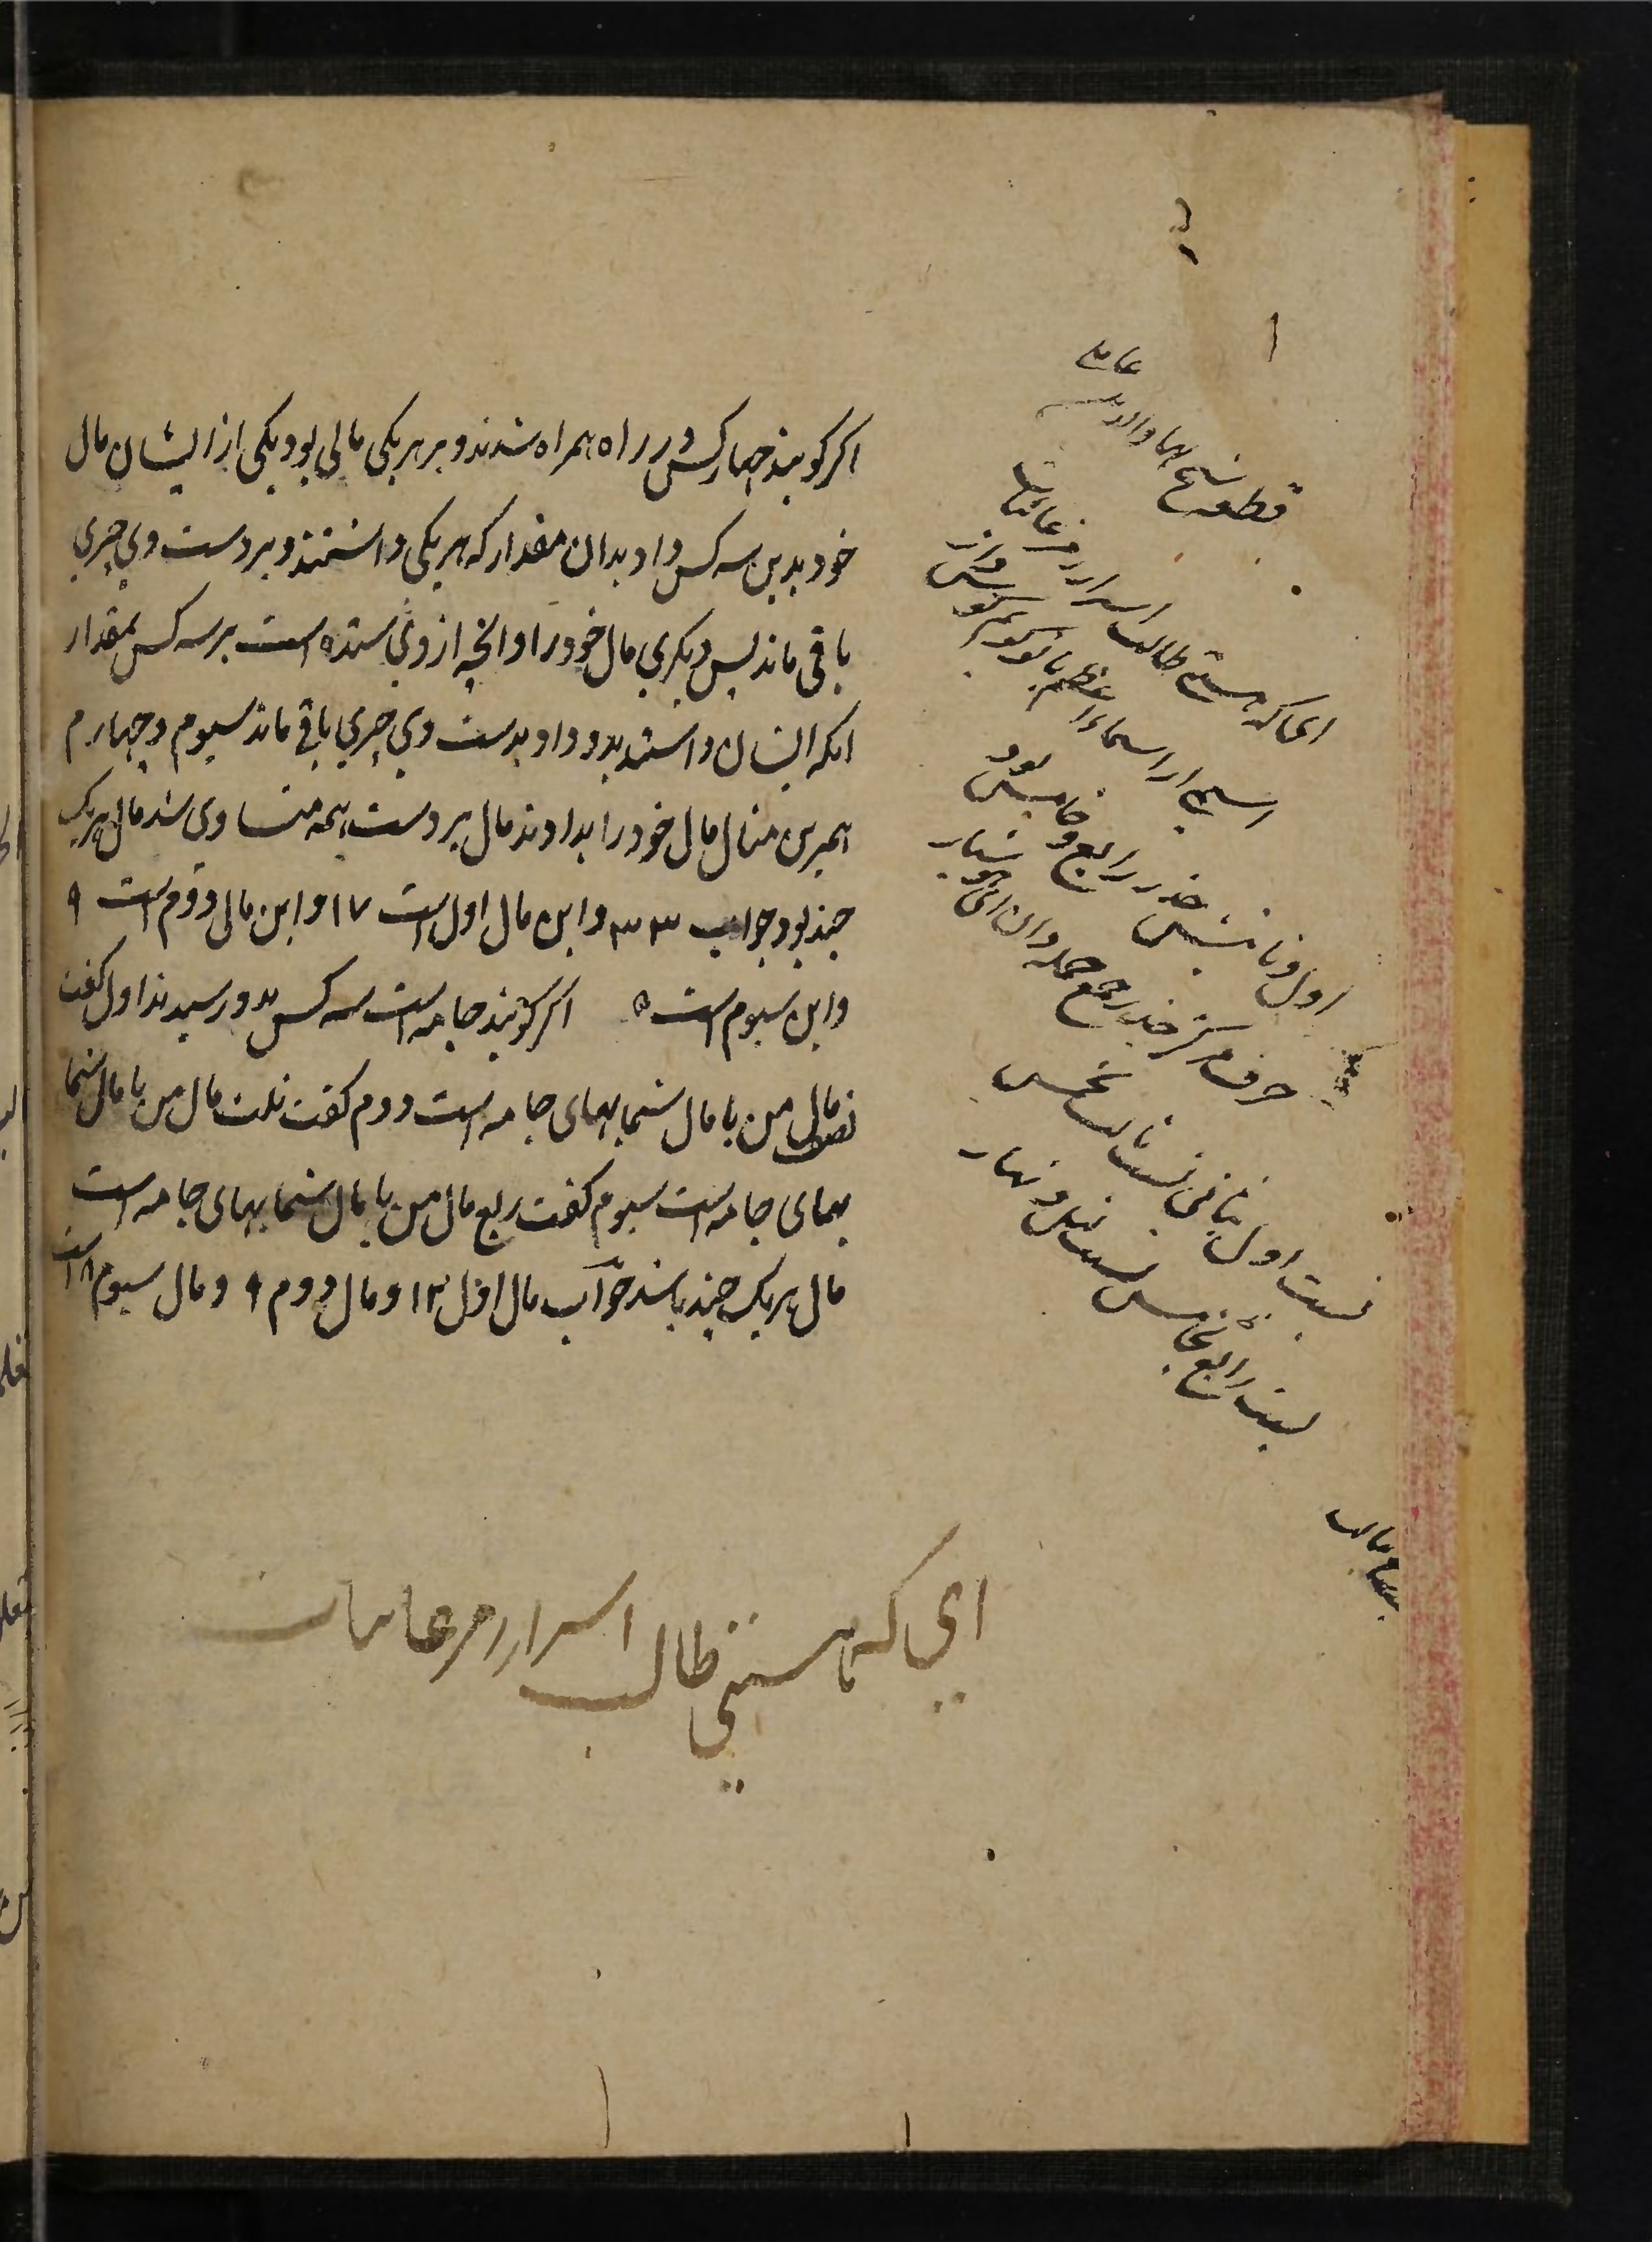 اکر کویند چهار کس در راه همراه شدند و بر هر یکی مالی بود یکی از ایشان مال
خود بدین سه کس داد بدان مقدار که هر یکی داشتند و بر دست وی چیزی
باقی ماند پس دیکری مال خود را و انچه از وی ستده است بر سه کس بمقدار
انکه ایشان داشتند بدو داد بدست وی چیزی باقی ماند سیوم و چهارم
همبرین مثال مال خود را بدادند مال بر دست همه متساوی شد مال هر یک
چند بود جواب ۳۳ و این مال اول است ۱۷ و این مال دوم است ۹
و این سیوم است ۵ اکر کویند جامه است سه کس بدو رسیدند اول کفت
نصف مال من با مال شما بهای جامه است دوم کفت ثلث مال من با مال شما
بهای جامه است سیوم کفت ربع مال من با مال شما بهای جامه است
مال هر یک چند باشد جواب مال اول ۱۲ و مال دوم ۹ و مال سیوم ۸ است
عاملی
قطعه شیخ بهاء والدین
ای که هستی طالب اسرار رمز غائبات
اسمی از اسماء اعظم با تو کویم
اول و ثانیش جذر رابع و خامس بود
حرف مرکز جذر جمع جمله دان ای هوشیار
نسبت اول بثانی نسبت ثالث بخمس
نسبت رابع بخامس نسبت لیل و نهار
ای که هستی طالب اسرار رمز غائبات